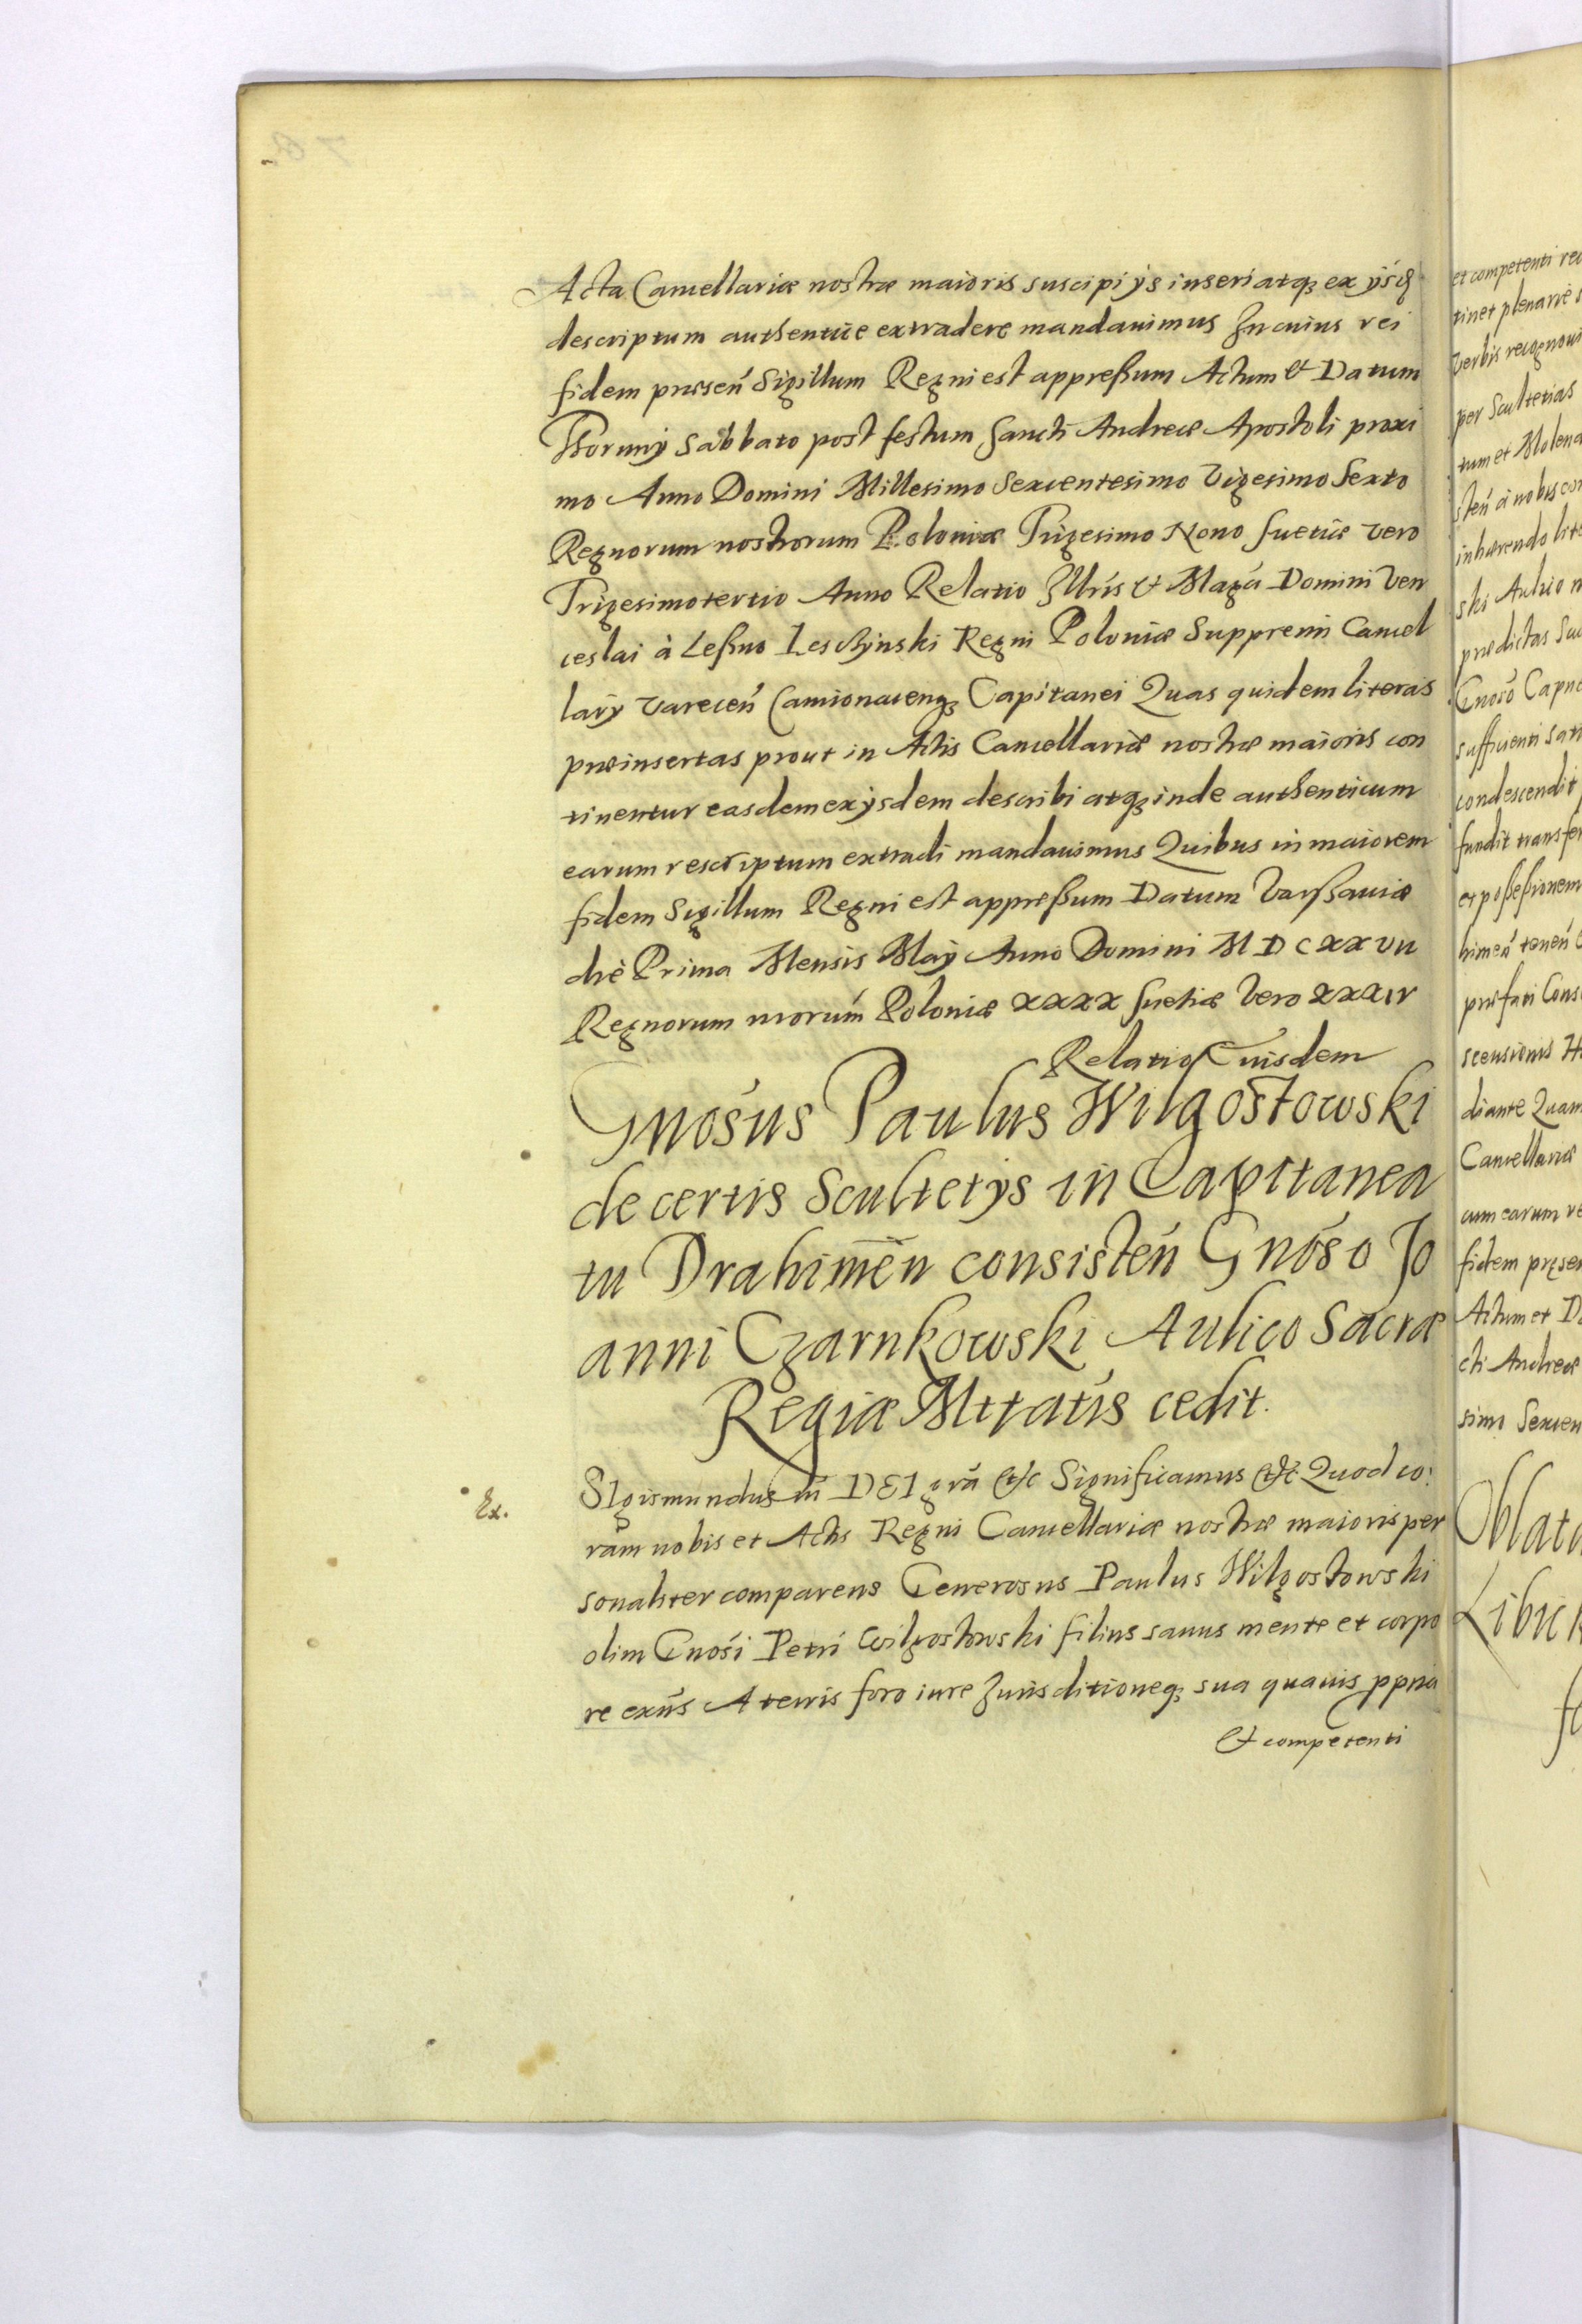 Acta Cancellariæ nostræ maioris suscipi ijs inseri atq₃ ex ijsq₃
descriptum authentice extradere mandauimus In cuius rei
fidem præsen̄ Sigillum Regni est appreßum Actum & Datum
Thoruny Sabbato post festum Sancti Andreæ Apostoli proxi
mo Anno Domini Millesimo Sexcentesimo Vigesimo Sexto
Regnorum nostrorum Poloniæ Trigesimo Nono Suetiæ vero
Trigesimotertio Anno Relatio Illris & Magci Domini Ven
ceslai à Leßno Leschÿnski Regni Poloniæ Suppremi Cancel
larÿ Varecen̄ Camionacenq₃ Capitanei Quas quidem literas
præinsertas prout in Actis Cancellariæ nostræ maioris con
tinentur easdem exÿsdem describi atq₃ inde authenticum
earum rescriptum extradi mandauimus Quibus in maiorem
fidem Sigillum Regni est appreßum Datum Varßauiæ
die Prima Mensis Maÿ Anno Domini M D C XX VII
Regnorum nrorum Poloniæ XXXX Suetiæ Vero XXXIV
Relatio Eiusdem
Gnosus Paulus Wilgostowski
de certis Scultetÿs in Capitanea
tu Drahimen̄ consisten̄ Gnoso Jo
anni Czarnkowski Aulico Sacræ
Regiæ Mttatis cedit.
Ex.
SIgismundus III DEI gra &c Significamus &c Quod co:
ram nobis et Actis Regni Cancellariæ nostræ maioris per
sonaliter comparens Generosus Paulus Wilgostowski
olim Gnosi Petri Wilgostowski filius sanus mente et corpo
re exn̄s A terris foro iure Iurisditioneq₃ sua quauis ppria
& competenti
et competenti
tinet plenarie
verbis recognoui
per Scultetias
tum et Molen
sten̄ à nobis
inhærendo lit
ski Aulico
prædictas
Gnoso Capn
sufficienti sati
condescendit
fundit transfer
et poßeßionem
himen̄ tenen̄
præfati Cons
scensionis
diante Quam
Cancellariæ
cum earum
fidem præsen
Actum et Da
cti Andreæ
simo Sexcen
Oblata
Libic